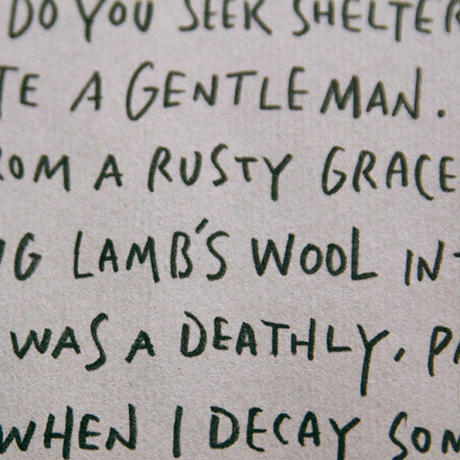 DO YOU SEEK SHELTER
TE A GENTLEMAN.
ROM A RUSTY GRACE
NG LAMB'S WOOL IN
WAS A DEATHLY, PA
WHEN I DECAY SOM